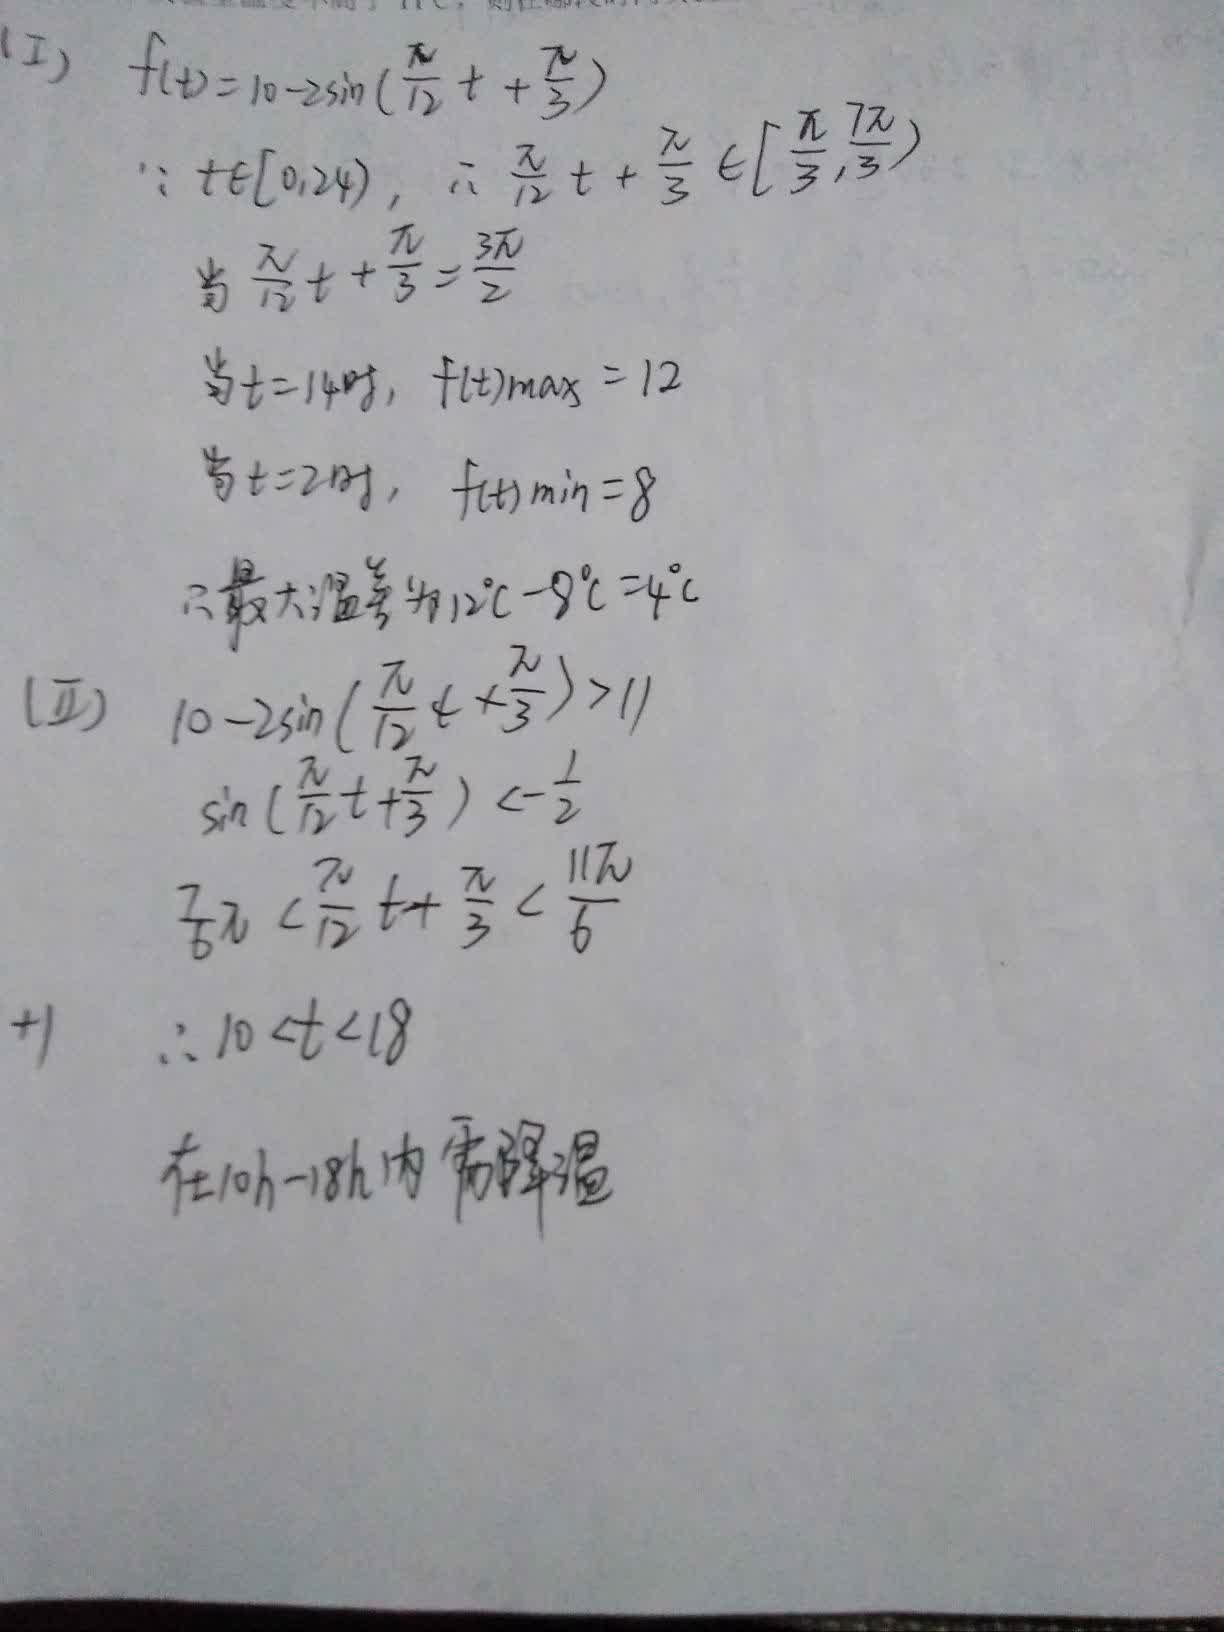 (Ⅰ) f(t)=10-2sin(π/12 t+π/3)
∵ t∈[0,24), ∴ π/12 t+π/3∈[π/3,7π/3)
当 π/12 t+π/3=3π/2
当t=14时, f(t)max=12
当t=2时, f(t)min=8
∴最大温差为12℃-8℃=4℃
(Ⅱ) 10-2sin(π/12 t+π/3)>11
sin(π/12 t+π/3)<-1/2
7/6π<π/12 t+π/3<11π/6
+1 ∴10<t<18
在10h-18h内需降温